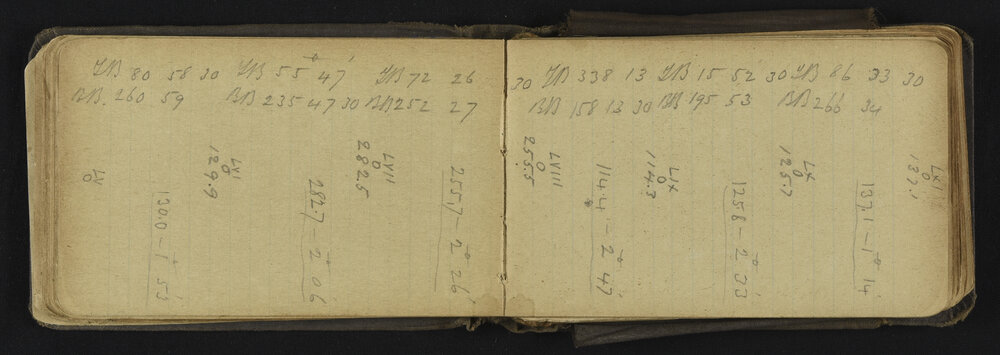 FB 80 58 30
BB. 260 59
FB 55° 47'
BB 235 47 30
FB 72 26
BB 252 27 30
FB 338 13
BB 158 13 30
FB 15 52' 30
BB 195 53
FB 86 33 30
BB 266 34
LV
0
130.0 – 1° 53'
LVI
0
129.9
282.7 – 2° 06
LVII
0
282.5
255.7 – 2° 26'
LVIII
0
255.5
114.4 – 2° 47'
LIX
0
114.3
125.8 – 2° 33'
LX
0
125.7
137.1 – 1° 14'
LXI
0
137.1